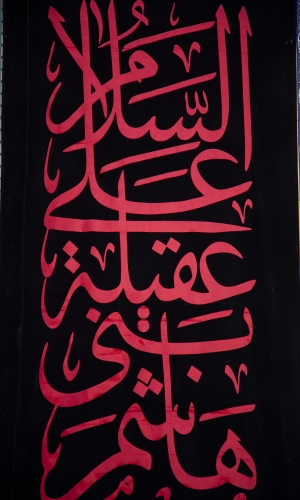 السَّلَامُ
عَلَى
عقيلة
بني
هاشم